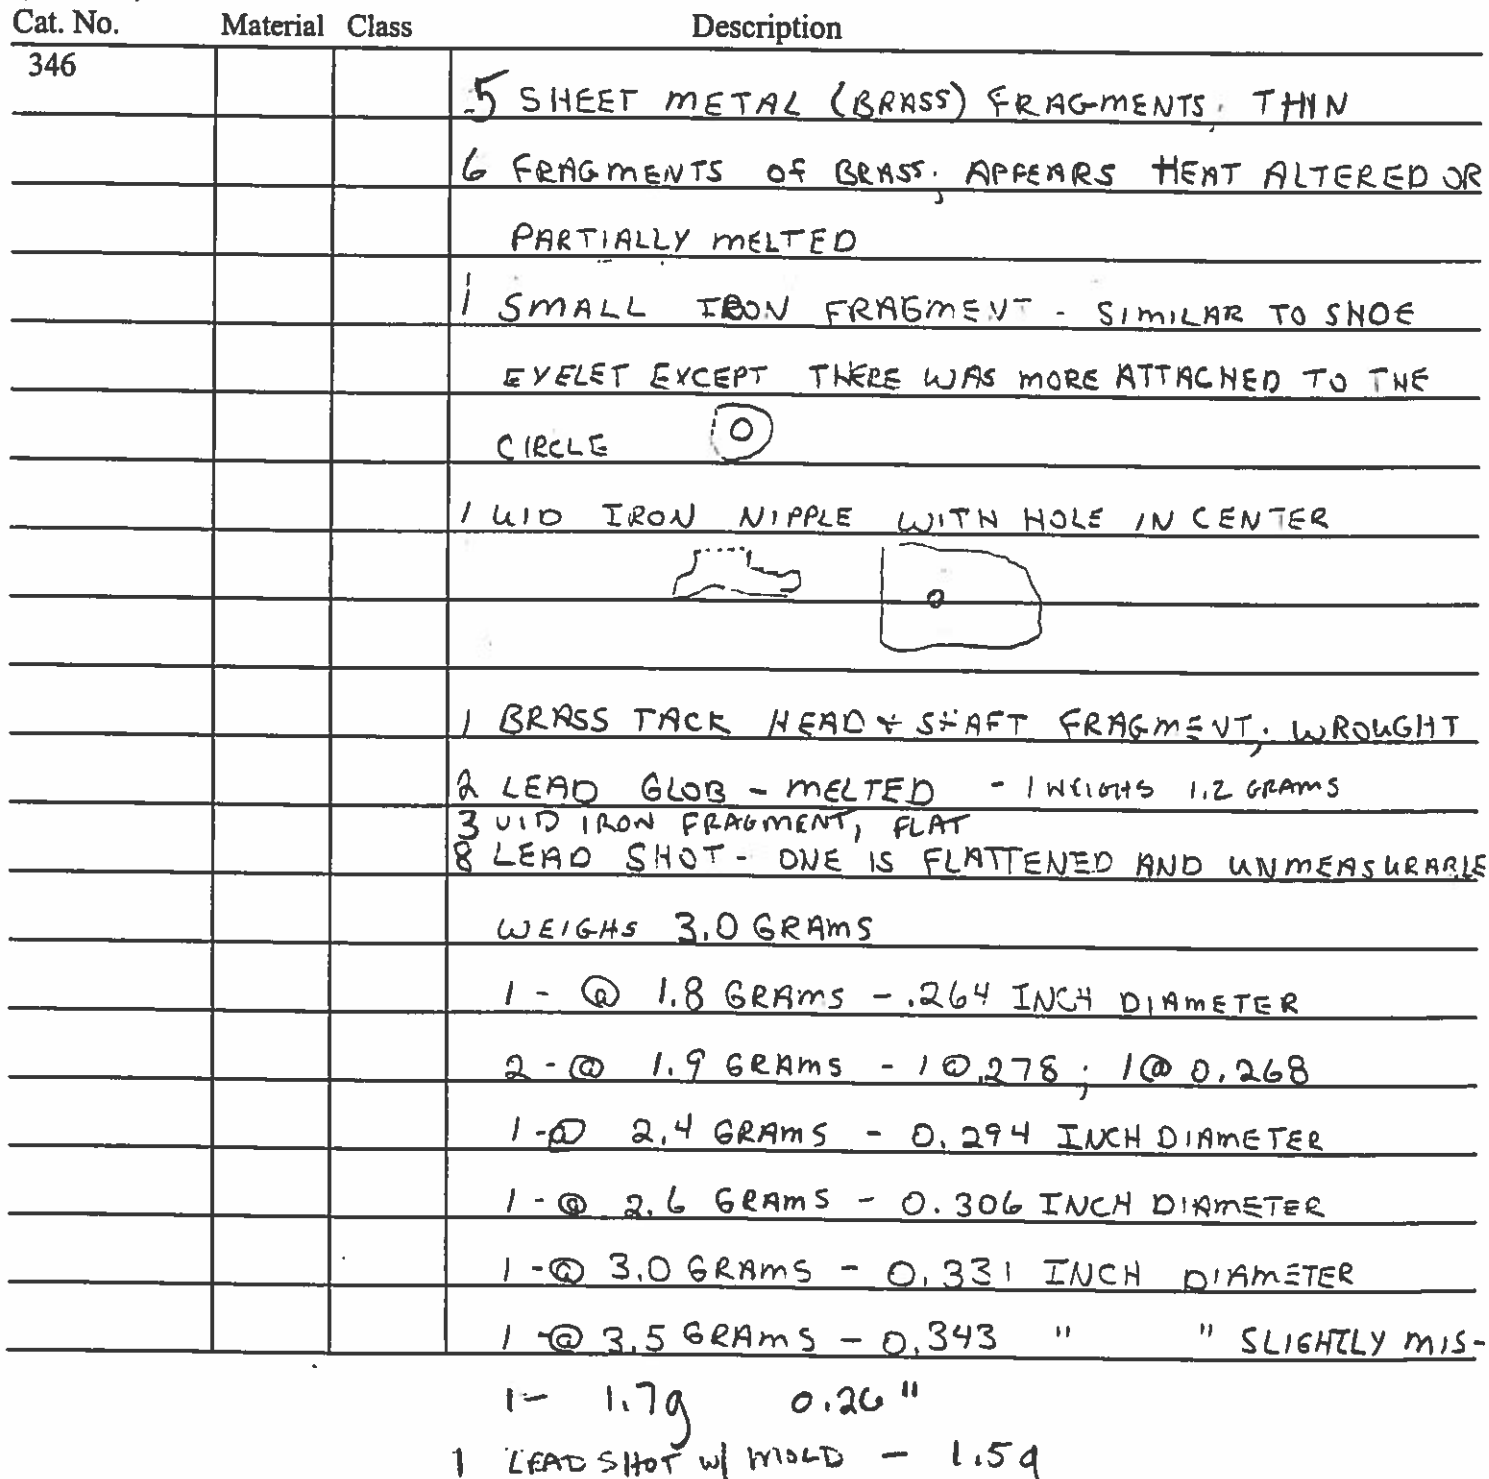 Cat. No. Material Class Description
346
5 SHEET METAL (BRASS) FRAGMENTS; THIN
6 FRAGMENTS OF BRASS; APPEARS HEAT ALTERED OR
PARTIALLY MELTED
1 SMALL IRON FRAGMENT - SIMILAR TO SHOE
EYELET EXCEPT THERE WAS MORE ATTACHED TO THE
CIRCLE
1 UID IRON NIPPLE WITH HOLE IN CENTER
1 BRASS TACK HEAD + SHAFT FRAGMENT; WROUGHT
2 LEAD GLOB - MELTED - 1 WEIGHS 1.2 GRAMS
3 UID IRON FRAGMENT, FLAT
8 LEAD SHOT - ONE IS FLATTENED AND UNMEASURABLE
WEIGHS 3.0 GRAMS
1 - @ 1.8 GRAMS - .264 INCH DIAMETER
2 - @ 1.9 GRAMS - 1 @ .278; 1 @ 0.268
1 - @ 2.4 GRAMS - 0.294 INCH DIAMETER
1 - @ 2.6 GRAMS - 0.306 INCH DIAMETER
1 - @ 3.0 GRAMS - 0.331 INCH DIAMETER
1 - @ 3.5 GRAMS - 0.343 " " SLIGHTLY MIS-
1 - 1.7g 0.26"
1 LEAD SHOT w/ MOLD - 1.5g